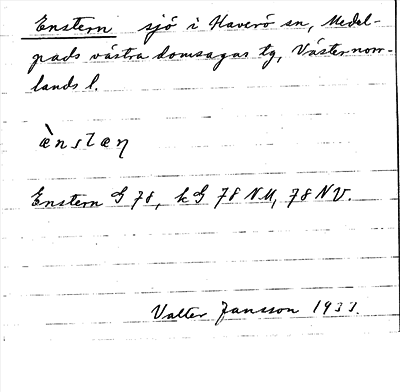 Enstern sjö i Haverö sn, Medel-
pads västra domsagas tg, Västernorr-
lands l.
ὲnstæn
Enstern G 78, kG 78 NU, 78 NV.
Valter Jansson 1933.